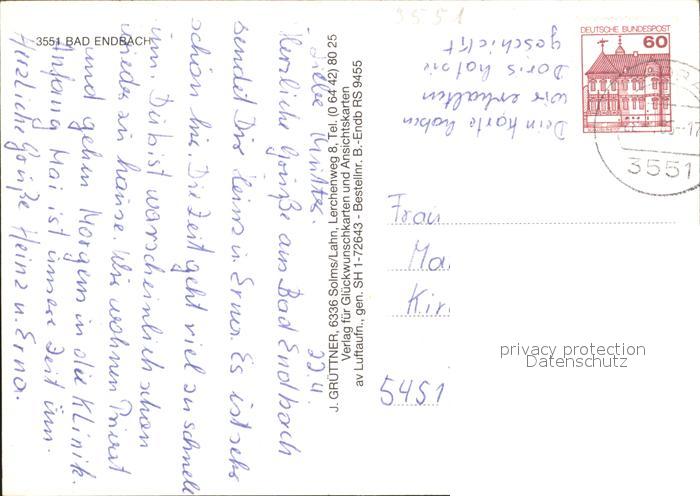 3551
3551 BAD ENDBACH
Liebe Mutter. 22.4.
Herzliche Grüße aus Bad Endbach
sendet Dir Heinz u. Erna. Es ist sehr
schön hir. Die Zeit geht viel zu schnell
üm. Du bist warscheinlich schon
wieder zu hause. Wir wohnen Privat
und gehen Morgens in die Klinik.
Anfang Mai ist unsere Zeit üm.
Herzliche Grüße Heinz u. Erna.
Dein Karte haben
wir erhalten
Doris hat sie
geschickt
J. GRÜTTNER, 6336 Solms/Lahn, Lerchenweg 8, Tel. (0 64 42) 80 25
Verlag für Glückwunschkarten und Ansichtskarten
av Luftaufn., gen. SH 1-72643 - Bestellnr. B.-Endb RS 9455
DEUTSCHE BUNDESPOST
60
3551
Frau
Ma
Kir
5451
privacy protection
Datenschutz